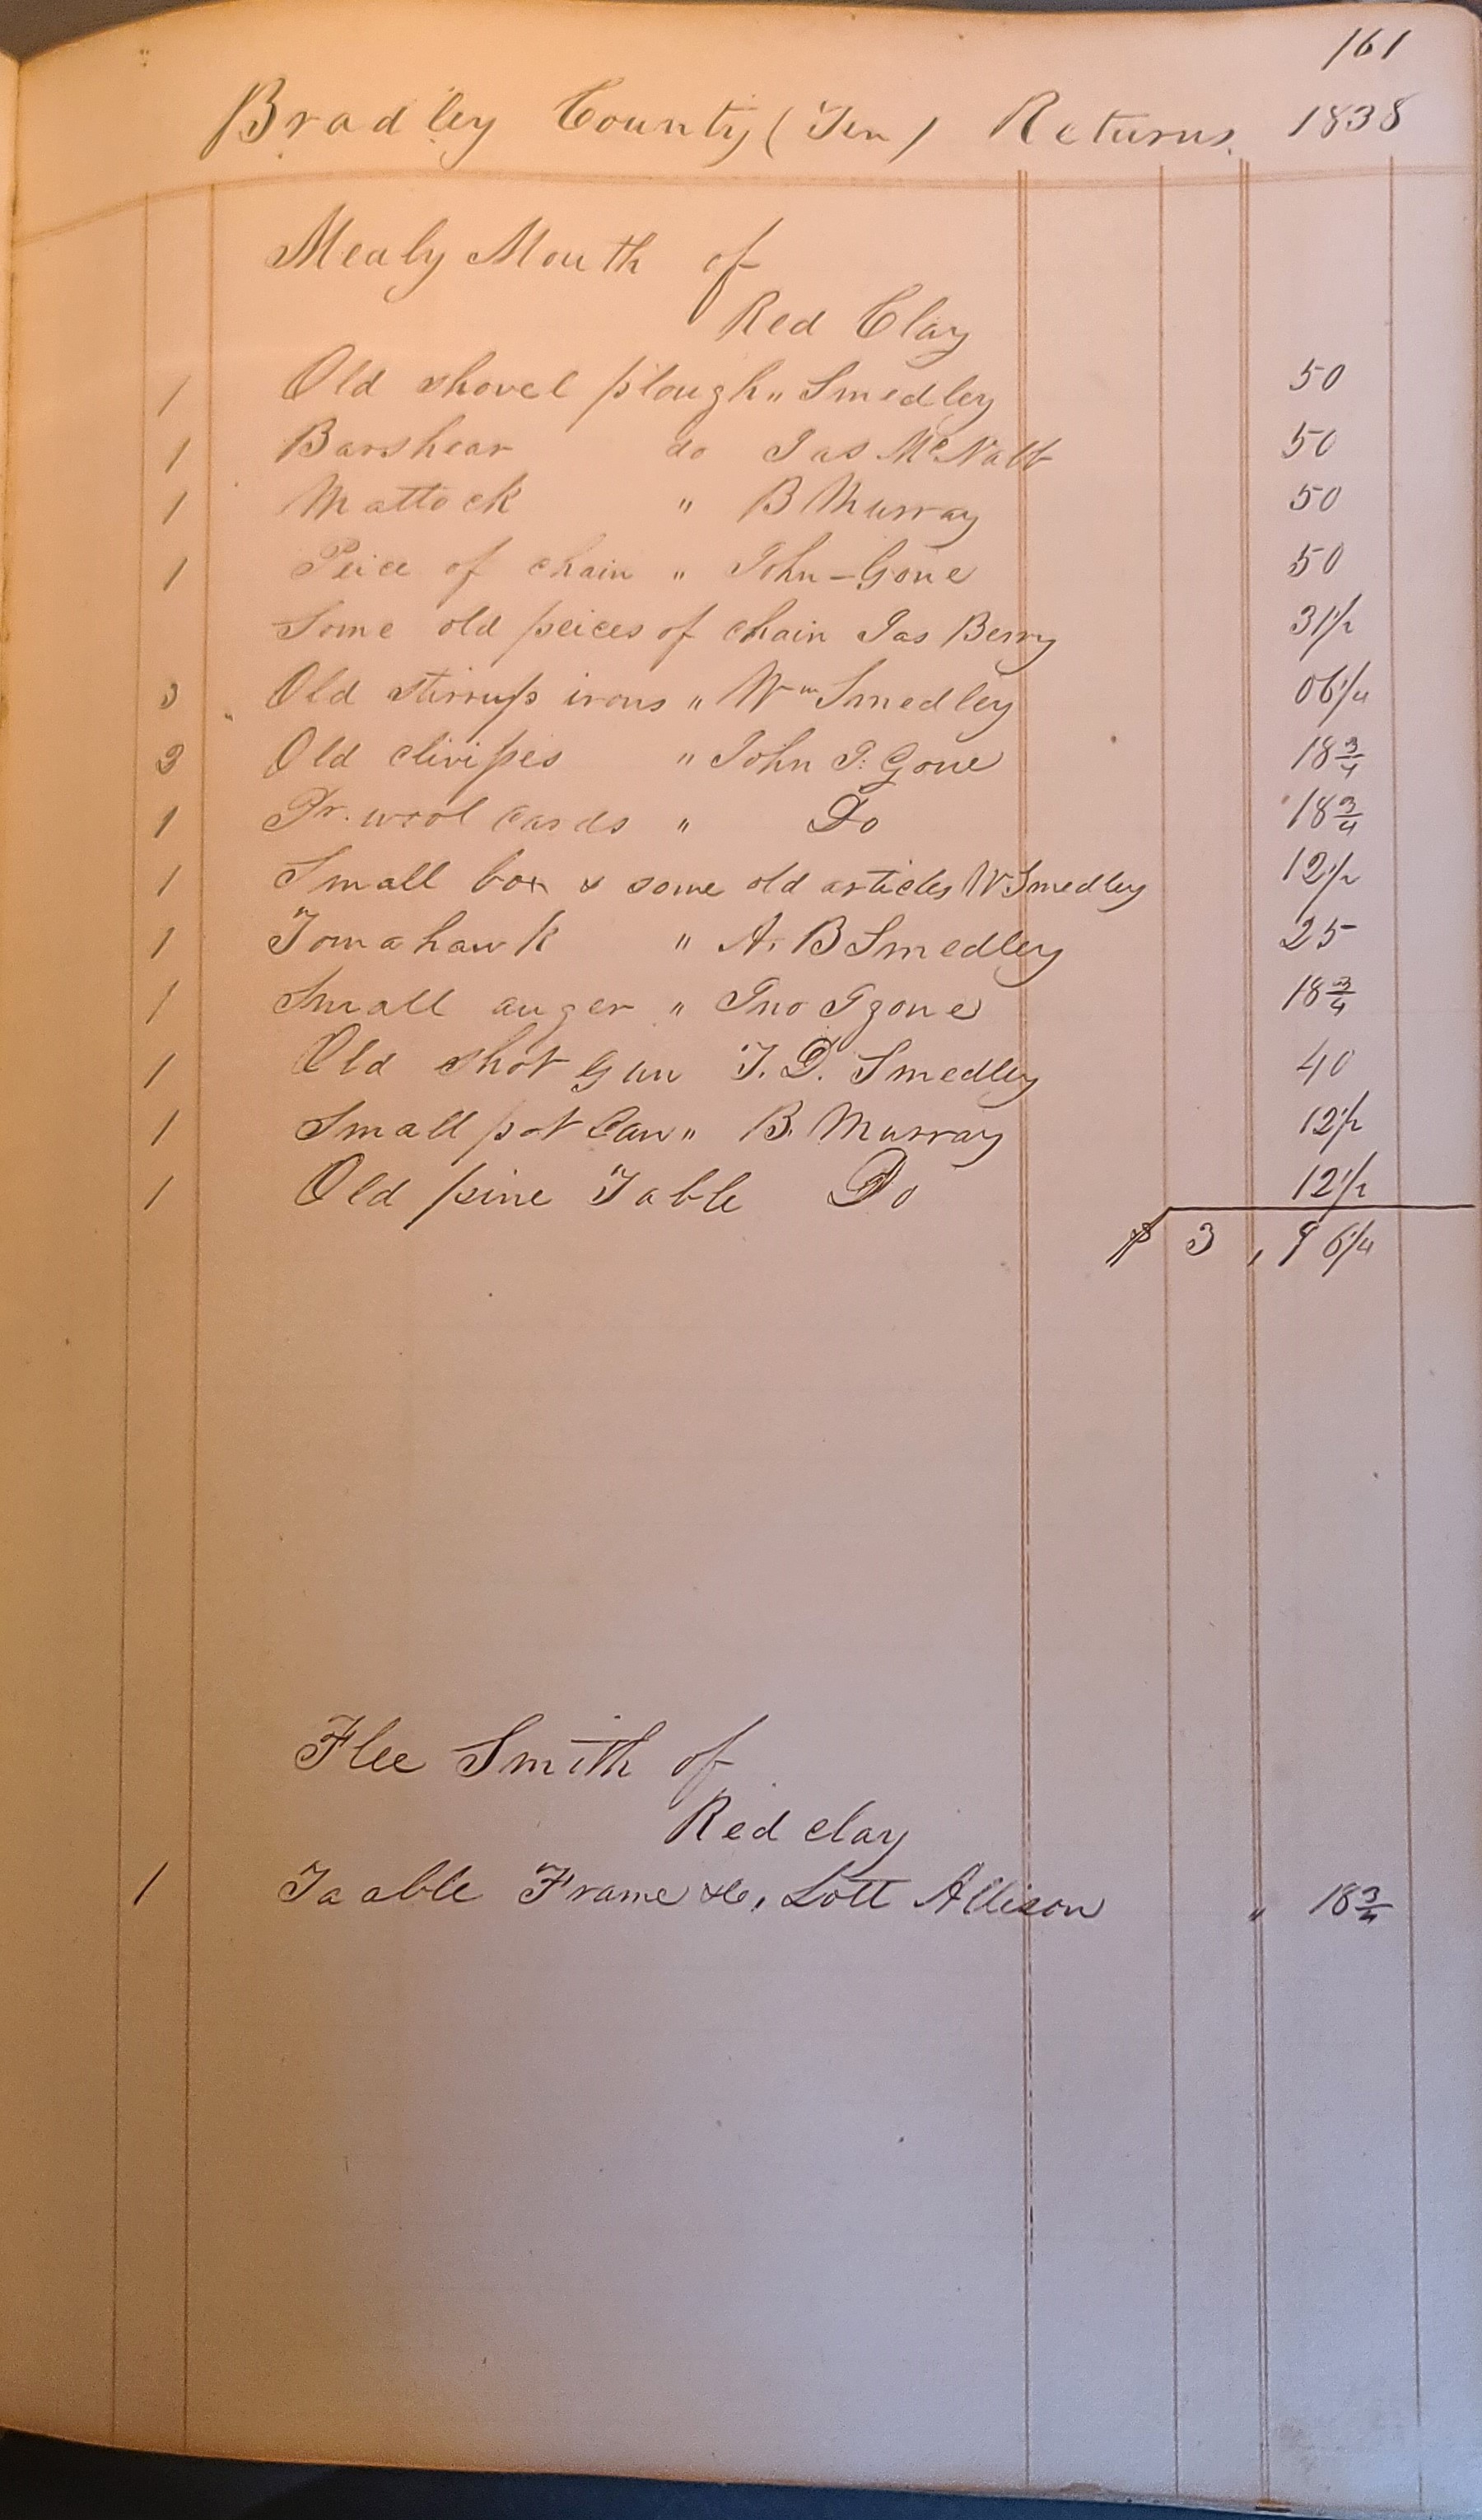 161
Bradley County (Ten) Returns. 1838
Mealy Mouth of
Red Clay
1 Old shovel plough " Smedley 50
1 Barshear do Jas McNabb 50
1 Mattock " B Murray 50
1 Peice of chain " John - Gone 50
Some old peices of chain Jas Berry 31 1/2
3 Old stirrup irons " Wm Smedley 06 1/4
3 Old clivises " John T. Gone 18 3/4
1 Pr. wool Cards " Do 18 3/4
1 Small box & some old articles W Smedley 12 1/2
1 Tomahawk " A. B Smedley 25
1 Small auger " Jno T gone 18 3/4
1 Old shot Gun T. D. Smedley 40
1 Small pot Can " B. Murray 12 1/2
1 Old pine Table Do 12 1/2
$ 3, 96 1/4
Flee Smith of
Red clay
1 Taable Frame &c, Lott Allison " 18 3/4